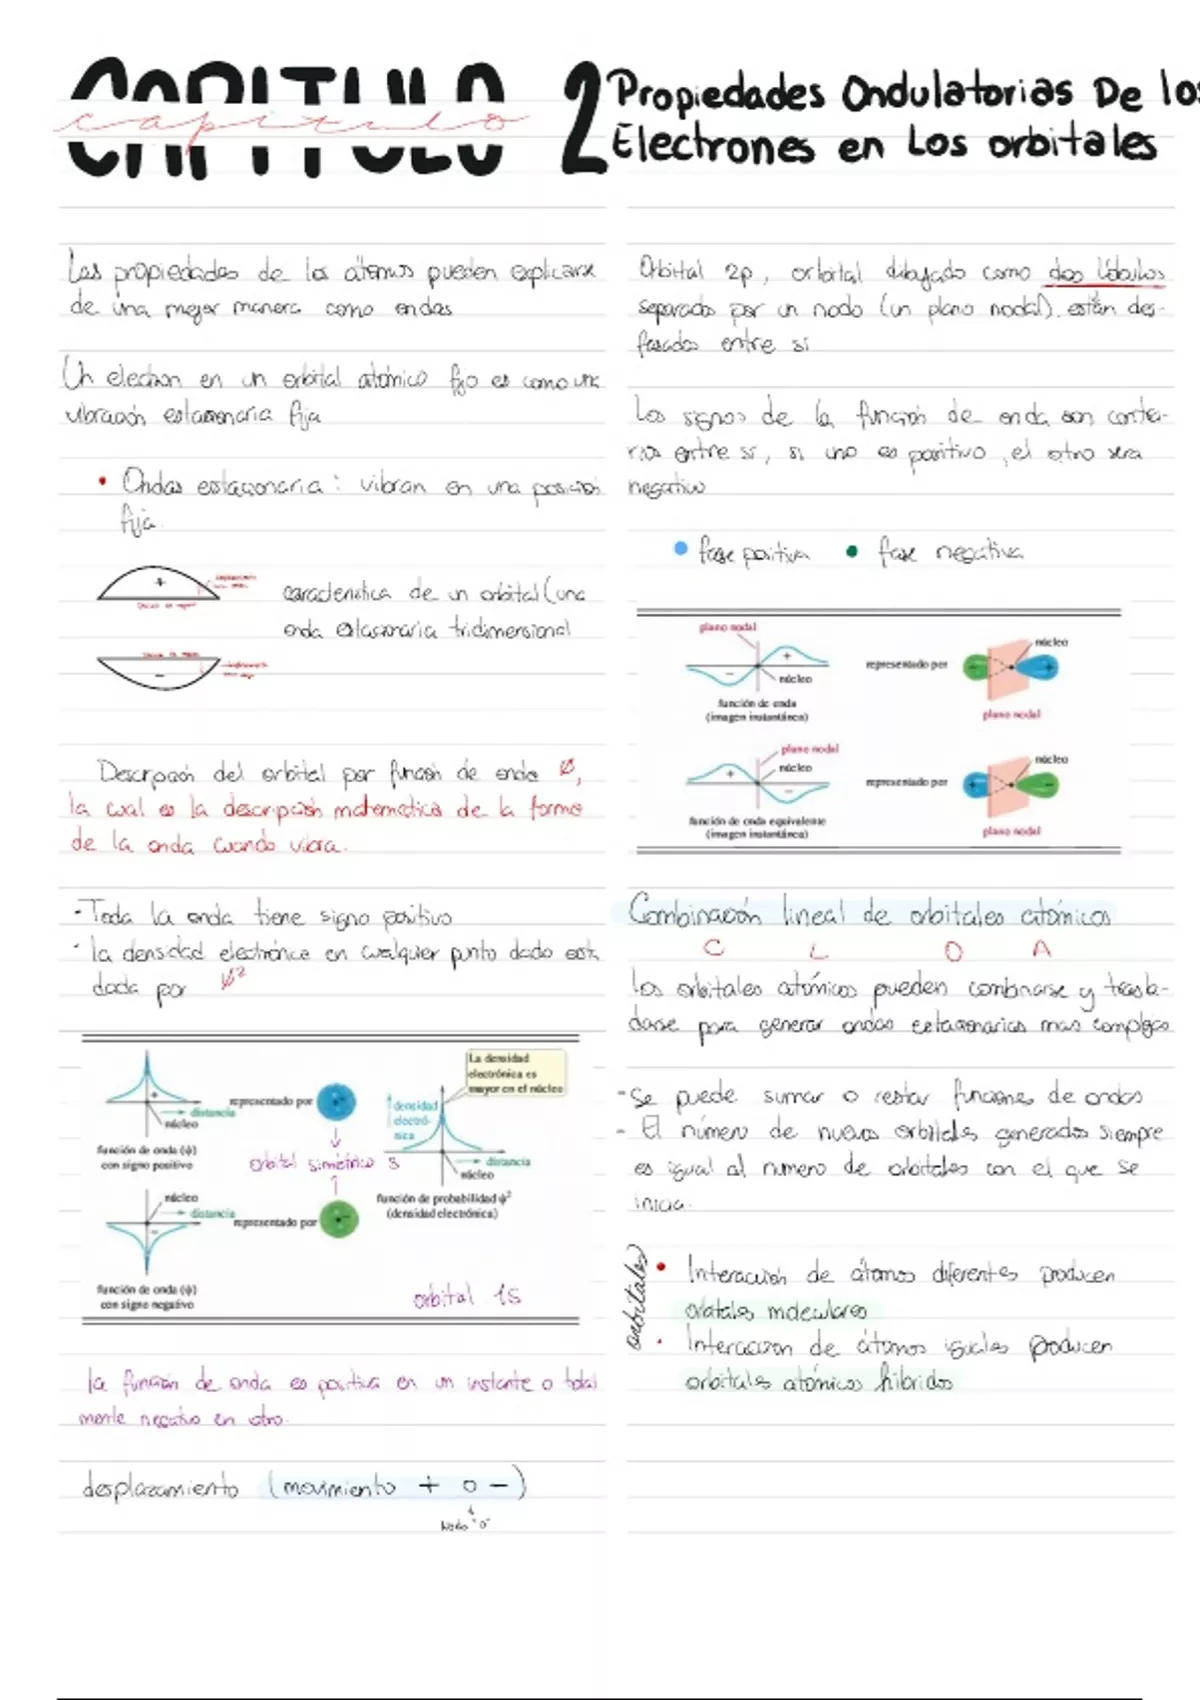 CAPITULO 2
capitulo
Propiedades Ondulatorias De los
Electrones en Los orbitales
Las propiedades de los átomos pueden explicarse
de una mejor manera como ondas
Un electron en un orbital atómico fijo es como una
vibración estacionaria fija
• Ondas estacionaria: vibran en una posición
fija.
+
característica de un orbital (una
onda estacionaria tridimensional
-
Descripción del orbital por función de onda ψ,
la cual es la descripción matematica de la forma
de la onda cuando vibra.
- Toda la onda tiene signo positivo
- la densidad electrónica en cualquier punto dado esta
dada por ψ²
+
distancia
núcleo
función de onda (ψ)
con signo positivo
representado por
orbital simétrico s
núcleo
distancia
-
función de onda (ψ)
con signo negativo
representado por
La densidad
electrónica es
mayor en el núcleo
densidad
electró-
nica
distancia
núcleo
función de probabilidad ψ²
(densidad electrónica)
orbital 1s
la función de onda es positiva en un instante o total
mente negativo en otro.
desplazamiento (movimiento + o -)
Nodo "0"
Orbital 2p, orbital dibujado como dos lóbulos
separados por un nodo (un plano nodal). están des-
fasados entre si
Los signos de la función de onda son contra-
rios entre si, si uno es positivo, el otro sera
negativo
• fase positiva • fase negativa
plano nodal
+
-
núcleo
función de onda
(imagen instantánea)
representado por
núcleo
- +
plano nodal
plano nodal
núcleo
+
-
función de onda equivalente
(imagen instantánea)
representado por
núcleo
+ -
plano nodal
Combinación lineal de orbitales atómicos
C L O A
los orbitales atómicos pueden combinarse y trasla-
darse para generar ondas estacionarias mas complejas
- Se puede sumar o restar funciones de ondas
- El número de nuevos orbitales generados siempre
es igual al numero de orbitales con el que se
inicia.
orbitales
• Interacción de átomos diferentes producen
orbitales moleculares
• Interaccion de átomos iguales producen
orbitales atómicos hibridos